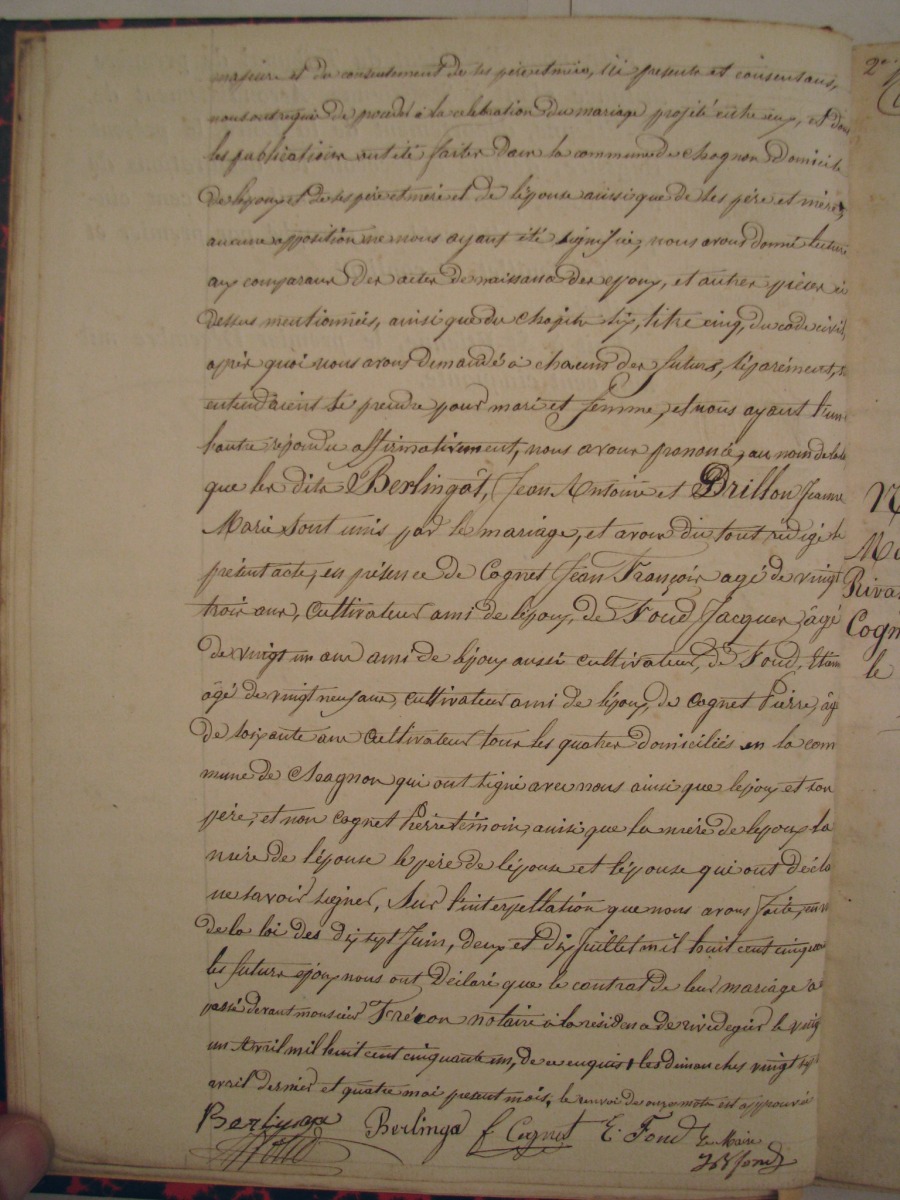 majeure et du consentement de ses père et mère, ici présents et consentans,
nous ont requis de procéder à la célébration du mariage projeté entre eux, et dont
les publications ont été faites dans la commune de Chagnon domicile
de l'époux et de ses père et mère et de l'épouse ainsi que de ses père et mère,
aucune opposition ne nous ayant été signifiée, nous avons donné lecture
aux comparans des actes de naissance des époux, et autres pièces ci
dessus mentionnées, ainsi que du chapitre six, titre cinq, du code civil,
après quoi nous avons demandé à chacun des futurs, séparément, s'
entendaient se prendre pour mari et femme, et nous ayant l'un
l'autre répondu affirmativement, nous avons prononcé, au nom de la loi
que les dits Berlingot, Jean Antoine et Brillon Jeanne
Marie sont unis par le mariage, et avons du tout rédigé le
présent acte, en présence de Cognet Jean François agé de vingt
trois ans, cultivateur ami de l'époux, de Fond Jacques, âgé
de vingt un ans ami de l'époux aussi cultivateur, de Fond, Etien
âgé de vingt neuf ans, cultivateur ami de l'époux, de Cognet Pierre, âgé
de soixante ans cultivateur tous les quatres domiciliés en la com
mune de Chagnon qui ont signé avec nous ainsi que l'époux et son
père, et non Cognet Pierre témoin, ainsi que la mère de l'époux la
mère de l'épouse le père de l'épouse et l'épouse qui ont décla
ne savoir signer, Sur l'interpellation que nous avons faite, en v
de la loi des dix sept Juin, deux et dix Juillet mil huit cent cinquan
les futurs époux nous ont déclaré que le contrat de leur mariage a
passé devant monsieur Frécon notaire à la résidence de rivedegier le vingt
un Avril mil huit cent cinquante un, de ce enquis les dimanches vingt sept
avril dernier et quatre mai présent mois, le renvoi de onze mots est approuvé
Berlingot Berlingo f Cognet E. Fond Le Maire
Fond JB fond
2e
N
Ma
Riva
Cogn
le